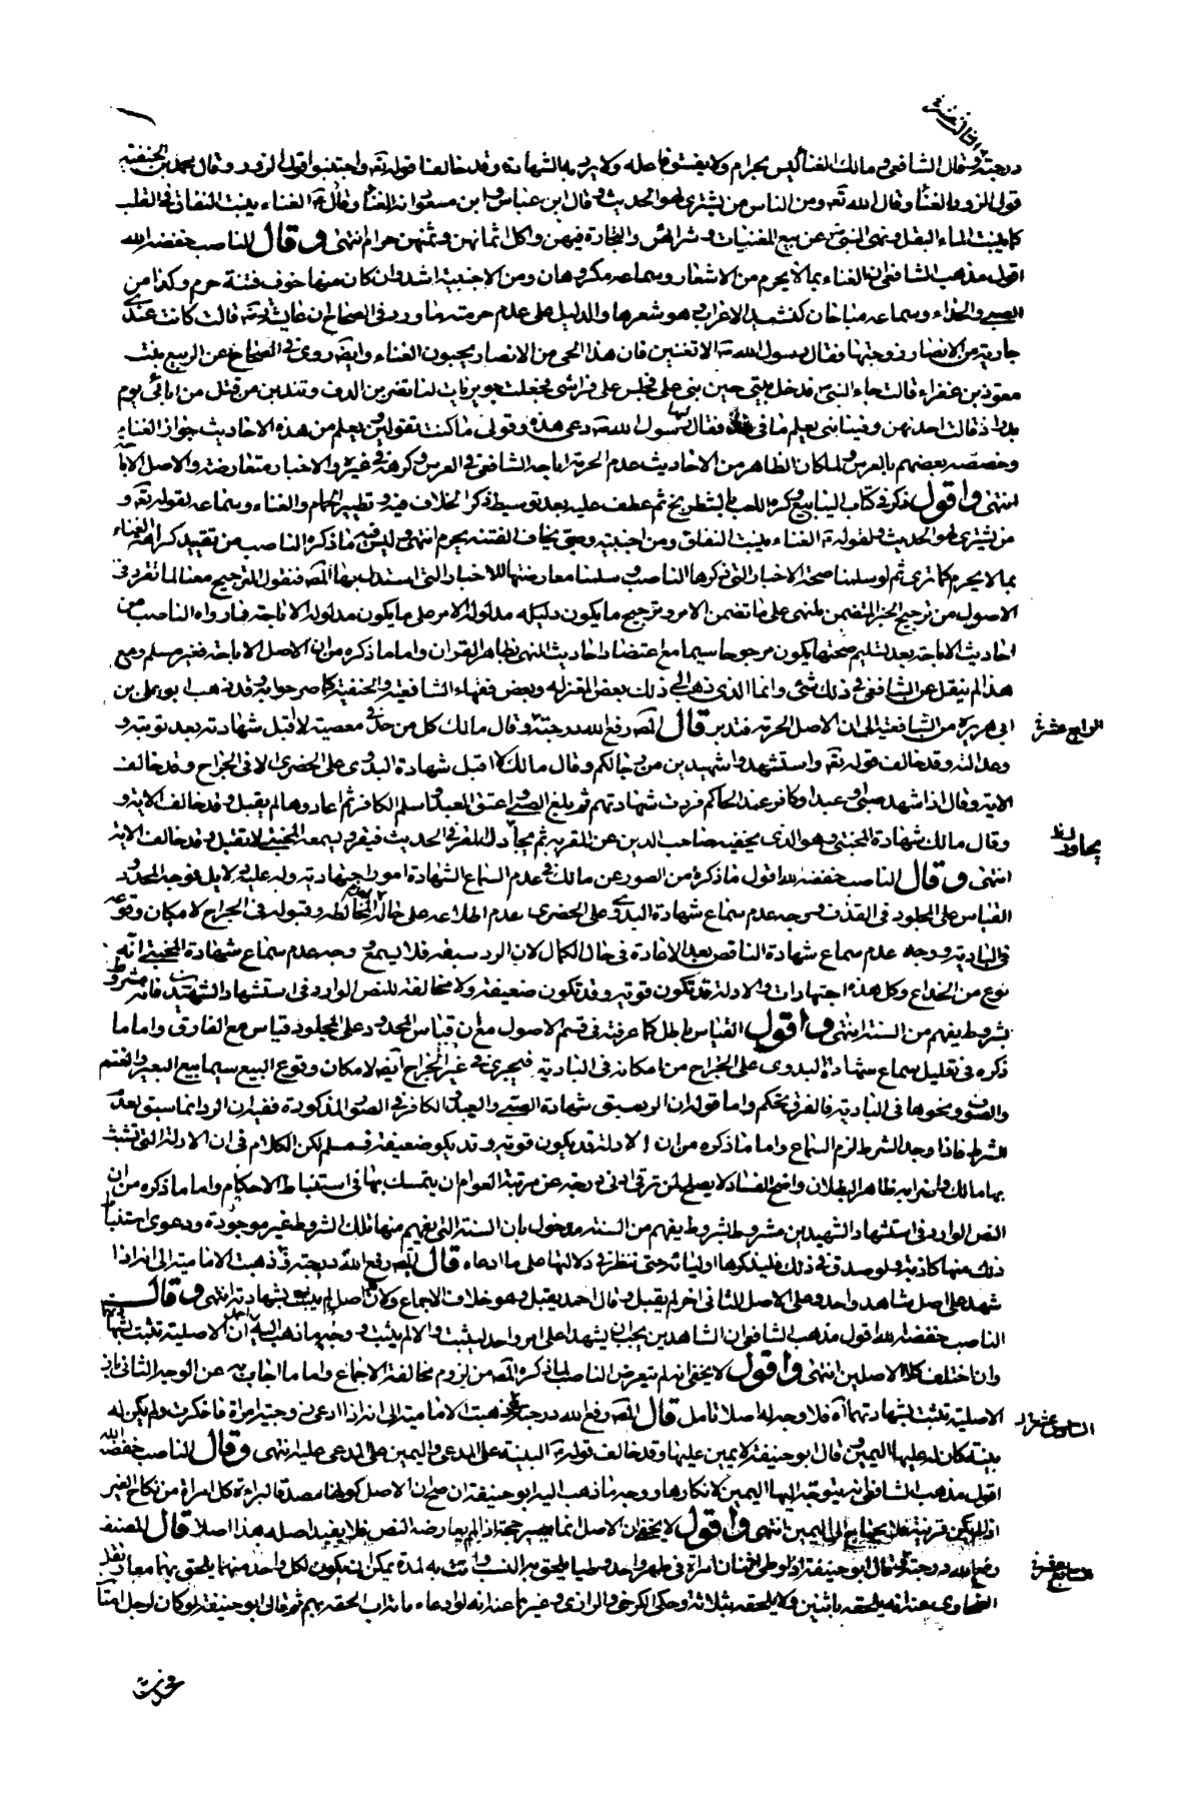 الثالث عشر
درجته وقال الشافعي ومالك الغناء ليس بحرام ولا يفسق فاعله ولا يرد به الشهادة وقد خالفا قوله تع واجتنبوا قول الزور وقال محمد بن الحنفية
قول الزور الغناء وقال الله تع ومن الناس من يشتري لهو الحديث وقال ابن عباس وابن مسعود انه الغناء وقال ص الغناء ينبت النفاق في القلب
كما ينبت الماء البقل ونهى النبي ص عن بيع المغنيات وشرائهن والتجارة فيهن واكل اثمانهن وثمنهن حرام انتهى وقال الناصب خفضه الله
اقول مذهب الشافعي ان الغناء بما لا يحرم من الاشعار وسماعه مكروهان ومن الاجنبية اشد وان كان منها خوف فتنة حرم وكذا من
الصبي والحداء وسماعه مباحان كنشيد الاعراب وهو شعرها والدليل على عدم حرمته ما ورد في الصحاح ان عايشة قالت كانت عندي
جارية من الانصار زوجتها فقال رسول الله ص الا تغنين فان هذا الحي من الانصار يحبون الغناء وايضا روى في الصحاح عن الربيع بنت
معوذ بن عفراء قالت جاء النبي ص فدخل بيتي حين بنى علي فجلس على فراشي فجعلت جويريات لنا تضربن الدف وتندبن من قتل من ابائي يوم
بدر اذ قالت احدنهن وفينا نبي يعلم ما في غد فقال لها رسول الله ص دعي هذه وقولي ما كنت تقولين ويعلم من هذه الاحاديث جواز الغناء
وخصصه بعضهم بالعرس ولما كان الظاهر من الاحاديث عدم الحرمة اباحه الشافعي في العرس وكرهه في غيره والاخبار متعارضة والاصل الاباحة
انتهى واقول ذكر في كتاب الينابيع وكره اللعب بالشطرنج ثم عطف عليه بعد توسيط ذكر الخلاف فيه وتطيير الحمام والغناء وسماعه لقوله تع و
من يشتري لهو الحديث ولقوله ص الغناء ينبت النفاق ومن اجنبية وحتى يخاف الفتنة يحرم انتهى وليس فيه ما ذكره الناصب من تقييد كراهة الغناء
بما لا يحرم كما ترى ثم لو سلمنا صحة الاخبار التي ذكرها الناصب وسلمنا معارضتها للاخبار التي استدل بها المص فنقول الترجيح معنا لما تقرر في
الاصول من ترجيح الخبر المتضمن للنهي على ما تضمن الامر وترجيح ما يكون دليله مدلوله الامر على ما يكون مدلوله الاباحة فما رواه الناصب من
احاديث الاباحة بعد تسليم صحتها يكون مرجوحا سيما مع اعتضاد احاديث النهي بظاهر القران واما ما ذكره من ان الاصل الاباحة فغير مسلم ومع
هذا لم ينقل عن الشافعي في ذلك شئ وانما الذي ذهب الى ذلك بعض المعتزلة وبعض فقهاء الشافعية والحنفية كما صرحوا به وقد ذهب ابو علي بن
الرابع عشر
ابي هريرة من الشافعية الى ان الاصل الحرمة فتدبر قال المص رفع الله درجته وقال مالك كل من حد في معصية لا اقبل شهادته بعد توبته و
عدالته وقد خالف قوله تع واستشهدوا شهيدين من رجالكم وقال مالك لا اقبل شهادة البدوي على الحضري الا في الجراح وقد خالف
الاية وقال اذا شهد صبي وعبد او كافر عند الحاكم فردت شهادتهم ثم بلغ الصبي واعتق العبد واسلم الكافر ثم اعادوها لم يقبل وقد خالف الاية و
وقال مالك شهادة المختبي وهو الذي يخفيه صاحب الدين عن المقر به ثم يجاذل المقر في الحديث فيقر ويسمعه المختبي لا تقبل وقد خالف الاية
انتهى وقال الناصب خفضه الله اقول ما ذكره من الصور عن مالك في عدم السماع الشهادة امور اجتهادية وله عليه دلايل فوجه المحدود
القياس على المجلود في القذف ووجه عدم سماع شهادة البدوي على الحضري عدم اطلاعه على حاله لعدم المخالطة وقبوله في الجراح لامكان وقوعه
في البادية ووجه عدم سماع شهادة الناقص بعد الاعادة في حال الكمال لان الرد سبقه فلا يسمع ووجه عدم سماع شهادة المختبي انه
نوع من الخداع وكل هذه اجتهادات والادلة قد تكون قوية وقد تكون ضعيفة ولا مخالفة للنص الوارد في استشهاد الشهيدين فانه مشروط
بشروط يفهم من السنة انتهى واقول القياس باطل كما عرفته في قسم الاصول مع ان قياس المحدود على المجلود قياس مع الفارق واما ما
ذكره في تعليل سماع شهادة البدوي على الجراح من امكانه في البادية فيجري في غير الجراح ايضا لامكان وقوع البيع سيما بيع البعير والغنم
والصوف ونحوها في البادية فالفرق تحكم واما قوله ان الرد سبق شهادة الصبي والعبد والكافر في الصور المذكورة ففيه ان الرد انما سبق بعدم
الشرط فاذا وجد الشرط لزم السماع واما ما ذكره من ان الادلة قد يكون قوية وقد يكون ضعيفة فمسلم لكن الكلام في ان الادلة التي تشبث
بها مالك واضرابه ظاهر البطلان واضح الفساد لا يصلح لمن ترقى ادنى درجة عن مرتبة العوام ان يتمسك بها في استنباط الاحكام واما ما ذكره من ان
النص الوارد في استشهاد الشهيدين مشروط بشروط يفهم من السنة مدخول بان السنة التي يفهم منها تلك الشروط غير موجودة ودعوى استنباط
ذلك منها كاذبة ولو صدق في ذلك فليذكرها اولياءه حتى ننظر في دلالتها على ما ادعاه قال المص رفع الله درجته ذهبت الامامية الى انه اذا
شهد على اصل شاهد واحد وعلى الاصل الثاني اخر لم يقبل وقال احمد يقبل وهو خلاف الاجماع ولان اصل لم يثبت بشهادته انتهى وقال
الناصب خفضه الله اقول مذهب الشافعي ان الشاهدين يجب ان يشهدا على امر واحد ليثبت والا لم يثبت ووجه ما ذهب اليه احمد ان الاصلية تثبت بشهادتهما
وان اختلف كلا الاصلين انتهى واقول لا يخفى انه لم يتعرض الناصب لما ذكره المص من لزوم مخالفة الاجماع واما ما اجاب به عن الوجه الثاني بان
الاصلية تثبت بشهادتهما اه فلا وجه له اصلا تامل قال المص رفع الله درجته ذهبت الامامية الى انه اذا ادعى زوجية امراة فانكرت ولم يكن له
بينة كان له عليها اليمين وقال ابو حنيفة لا يمين عليها وقد خالف قوله ص البينة على المدعي واليمين على المدعى عليه انتهى وقال الناصب خفضه الله
اقول مذهب الشافعي انه يتوجه اليها اليمين لانكارها ووجه ما ذهب اليه ابو حنيفة ان صح ان الاصل كونها مصدقة البراءة كل امراة من نكاح الغير
اذا لم يكن قرينة فلا يحتاج الى اليمين انتهى واقول لا يخفى ان الاصل انما يصير حجة اذا لم يعارضه النص فلا يفيد اصله هذا اصلا قال المصنف
السابع عشر
رفع الله درجته وقال ابو حنيفة اذا وطئ اثنان امراة في طهر واحد وطيا يلحق به النسب واتت به لمدة يمكن ان يكون لكل واحد منهما يلحق بهما معا ونقل
الطحاوي عنه انه يلحقه باثنين ولا يلحقه بثلاثة وحكى الكرخي والرازي وغيرهما عنه انه لو ادعاه مائة اب الحقه بهم ثم قال ابو حنيفة لو كان لرجل امتان